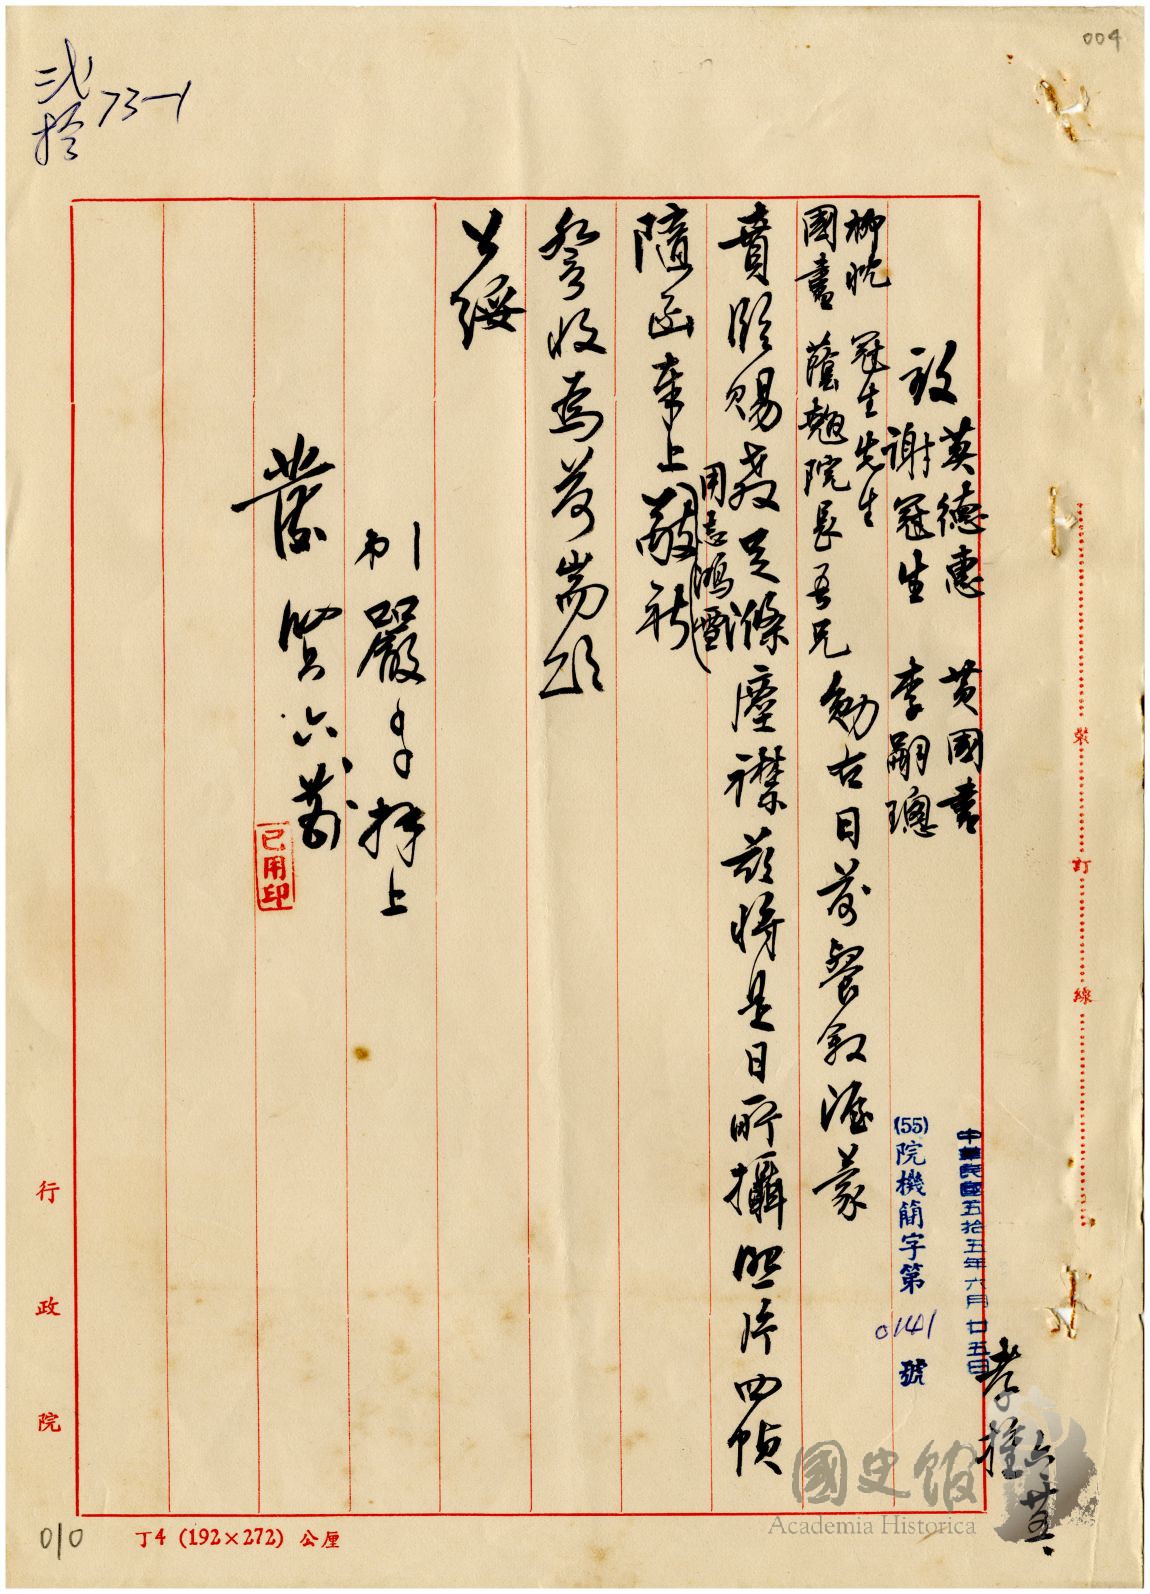 004
弍拾 73-1
莫德惠 黃國書
致
謝冠生 李嗣璁
柳忱 冠生先生
國書 蔭翹院長吾兄勛右日前餐敘渥蒙
賁臨賜教足滌塵襟茲將是日所攝照片四幀
用志鴻雪
隨函奉上敬祈
詧收為荷耑頌
公綏
弟嚴 拜上
六
已用印
中華民國五拾五年六月廿五日
(55)院機簡字第0141號
六 廿五
裝 訂 線
行政院
010
丁4 (192×272) 公厘
國史館
Academia Historica